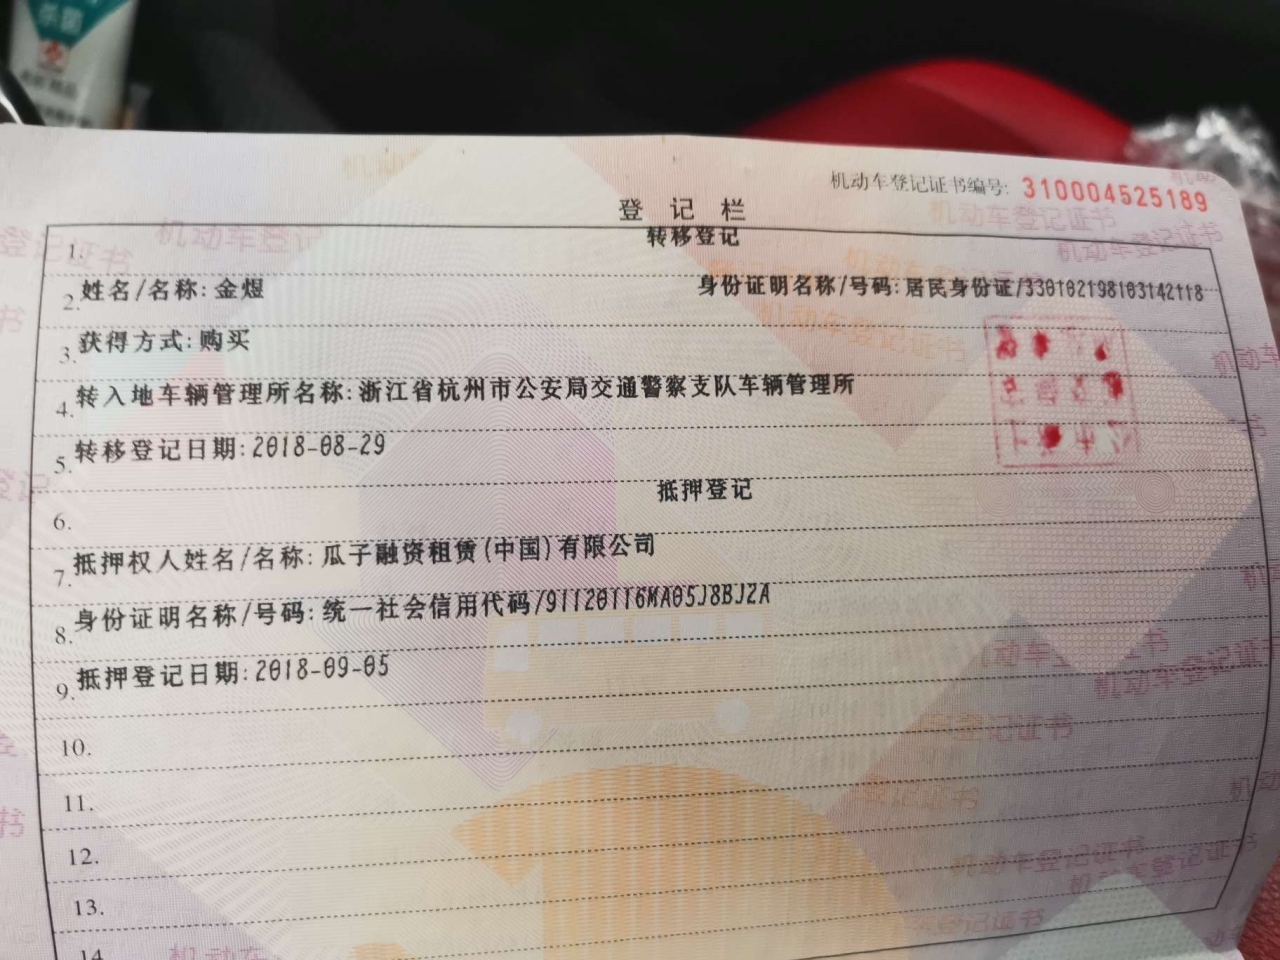 杀菌
机动车登记证书编号: 310004525189
登 记 栏
1. 转移登记
2. 姓名/名称: 金煜 身份证明名称/号码: 居民身份证/330102198103142118
3. 获得方式: 购买
4. 转入地车辆管理所名称: 浙江省杭州市公安局交通警察支队车辆管理所
5. 转移登记日期: 2018-08-29
6. 抵押登记
7. 抵押权人姓名/名称: 瓜子融资租赁(中国)有限公司
8. 身份证明名称/号码: 统一社会信用代码/91120116MA05J8BJ2A
9. 抵押登记日期: 2018-09-05
10.
11.
12.
13.
14